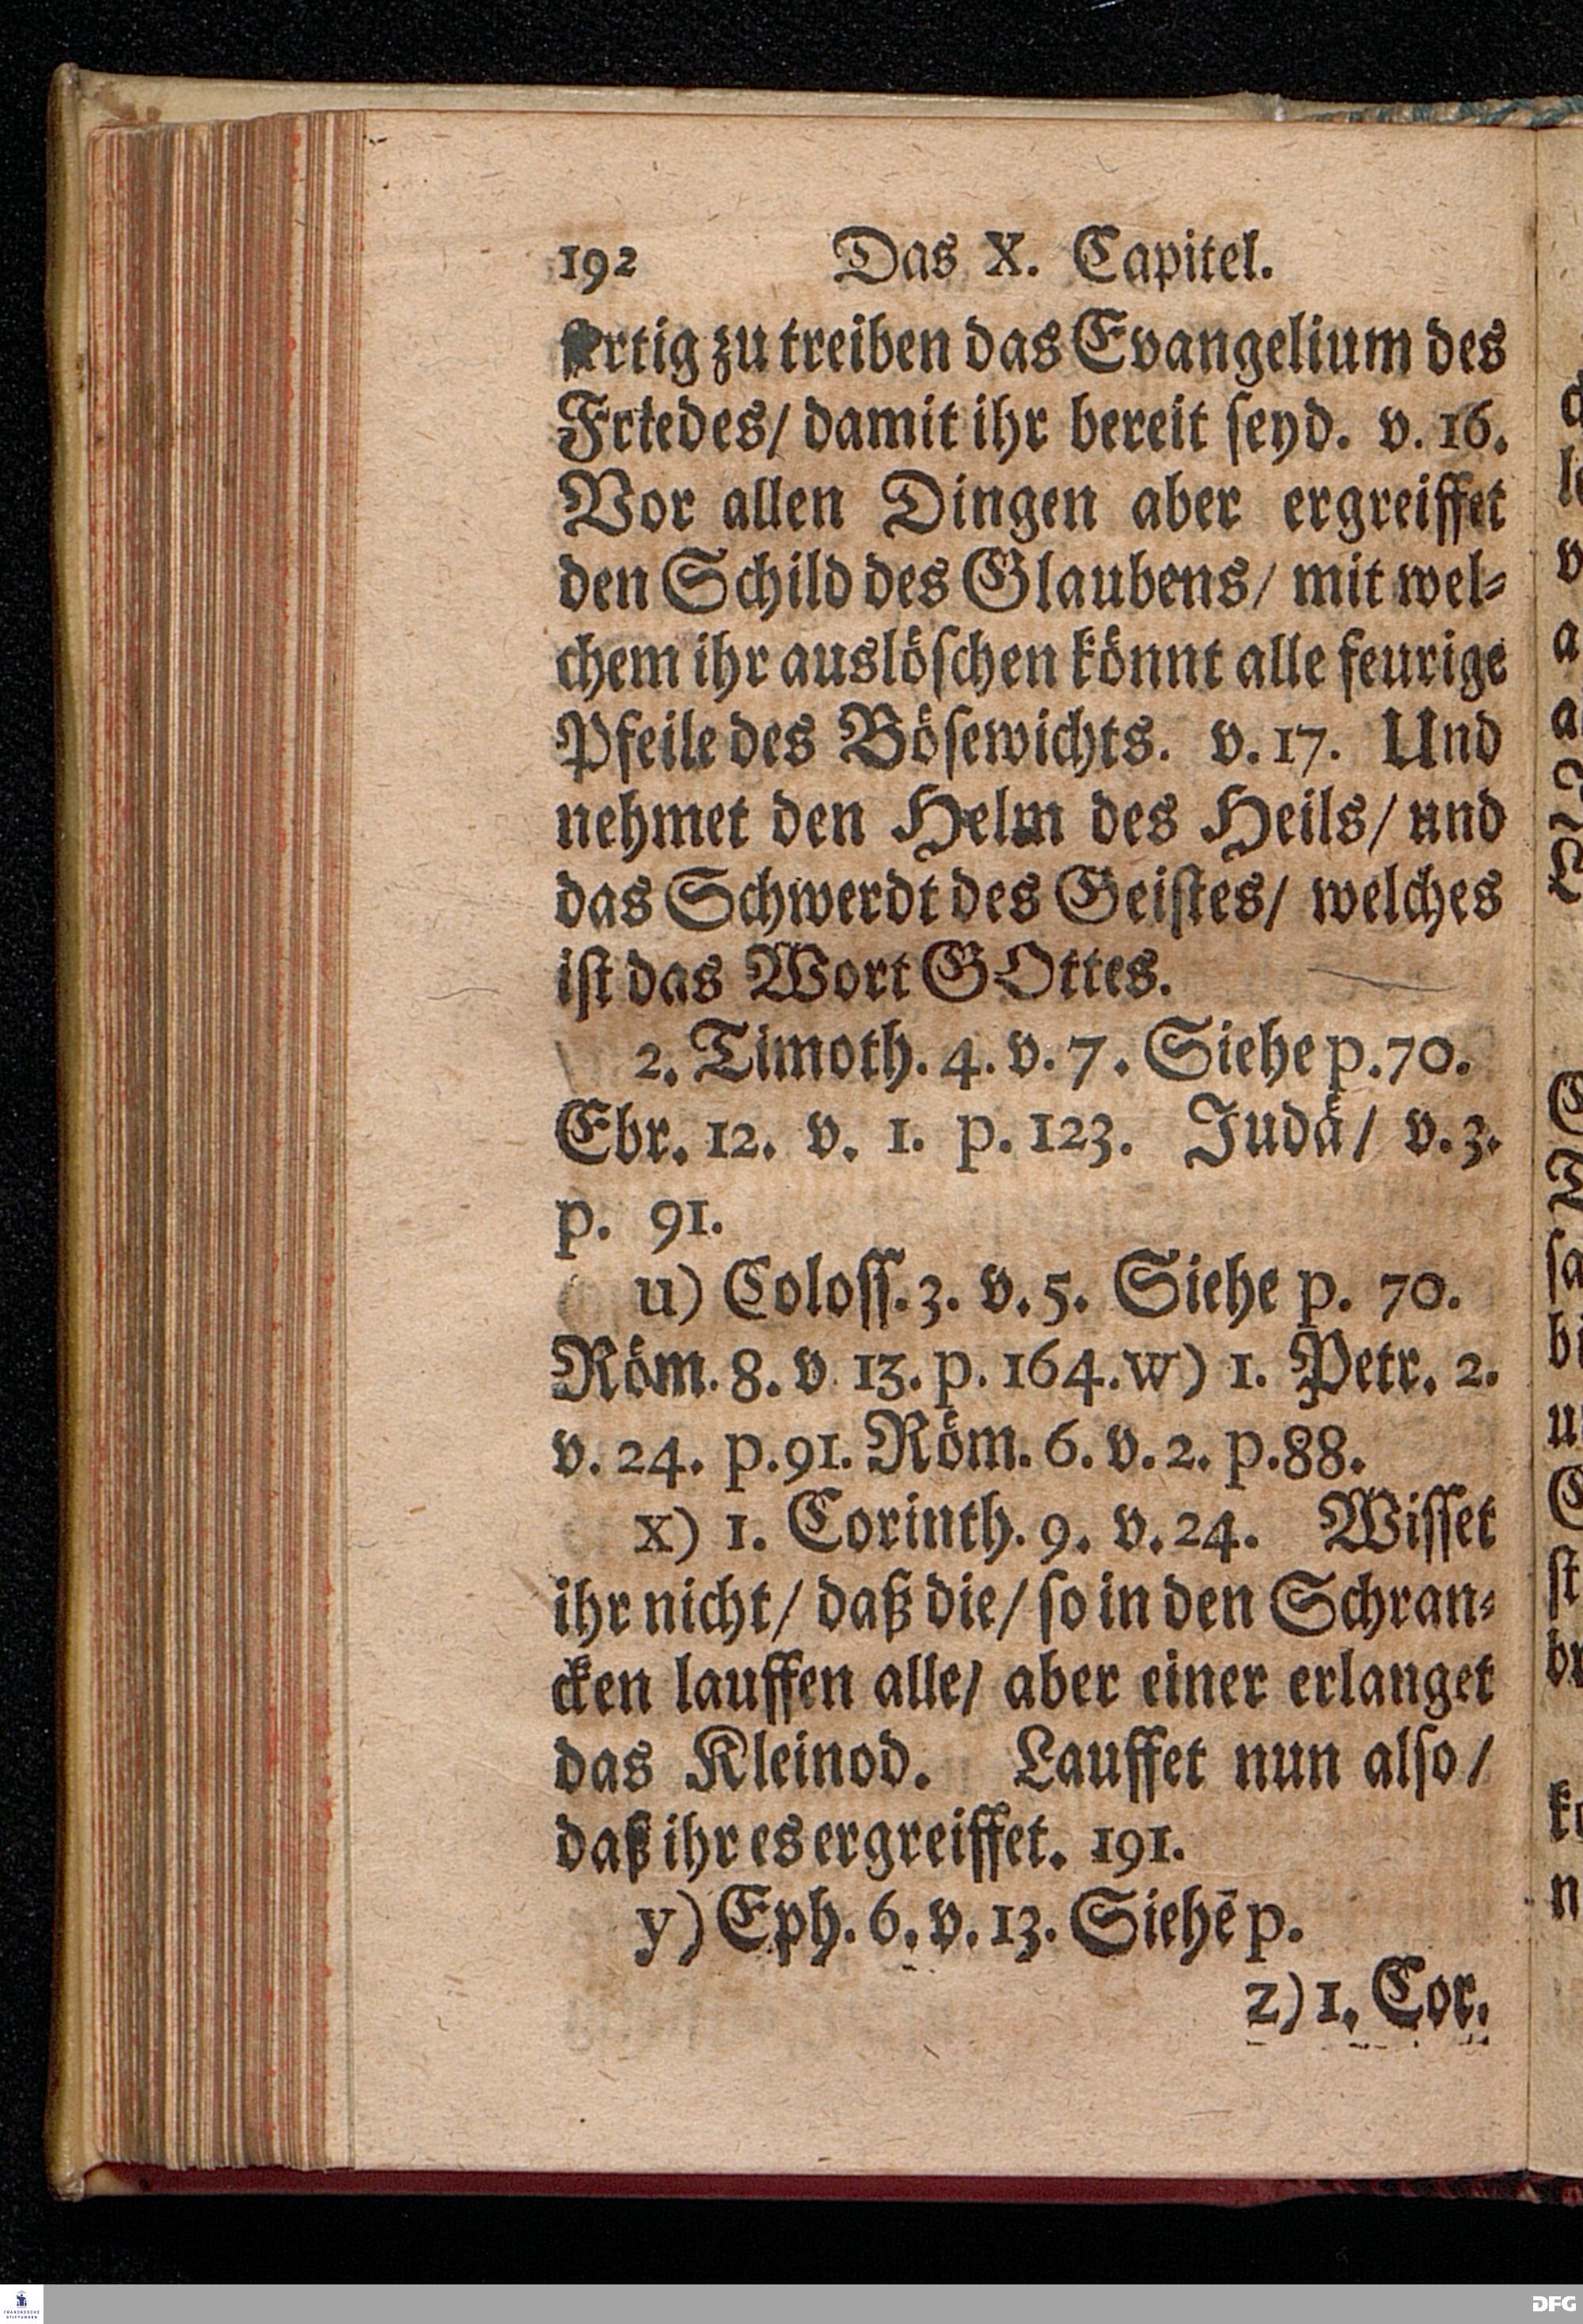 192 Das X. Capitel.
fertig zu treiben das Evangelium des
Frtedes/ damit ihr bereit ſeyd. v. 16.
Vor allen Dingen aber ergreiffet
den Schild des Glaubens/ mit wel⸗
chem ihr auslöſchen könnt alle feurige
Pfeile des Böſewichts. v. 17. Und
nehmet den Helm des Heils/ und
das Schwerdt des Geiſtes/ welches
iſt das Wort GOttes.
2. Timoth. 4. v. 7. Siehe p. 70.
Ebr. 12. v. 1. p. 123. Judä/ v. 3.
p. 91.
u) Coloſſ. 3. v. 5. Siehe p. 70.
Röm. 8. v 13. p. 164. w) 1. Petr. 2.
v. 24. p. 91. Röm. 6. v. 2. p. 88.
x) 1. Corinth. 9. v. 24. Wiſſet
ihr nicht/ daß die/ ſo in den Schran⸗
cken lauffen alle/ aber einer erlanget
das Kleinod. Lauffet nun alſo/
daß ihr es ergreiffet. 191.
y) Eph. 6. v. 13. Siehē p.
z) 1. Cor.
FRANCKESCHE
STIFTUNGEN
DFG